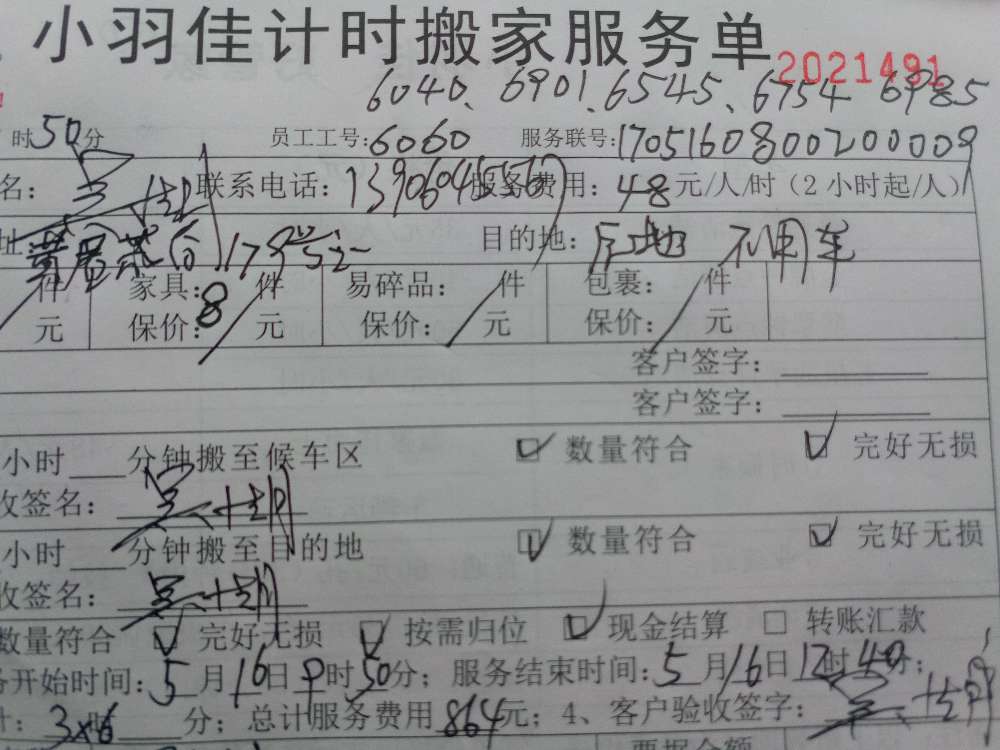 小羽佳计时搬家服务单 2021491
6040、6901、6545、6754 6985
时50分 员工工号:6060 服务联号:17051608002000009
名: 联系电话: 服务费用:48元/人/时(2小时起/人)
址: 目的地:原地 不用车
件 家具:8 件 易碎品: 件 包裹: 件
元 保价: 元 保价: 元 保价: 元
客户签字:
客户签字:
小时 分钟搬至候车区 ☑ 数量符合 ☑ 完好无损
收签名:
小时 分钟搬至目的地 ☑ 数量符合 ☑ 完好无损
收签名:
数量符合 ☑ 完好无损 ☑ 按需归位 ☑ 现金结算 □ 转账汇款
务开始时间:5月16日9时50分;服务结束时间:5月16日12时40分;
计:3×6 分;总计服务费用864元;4、客户验收签字:
票据金额